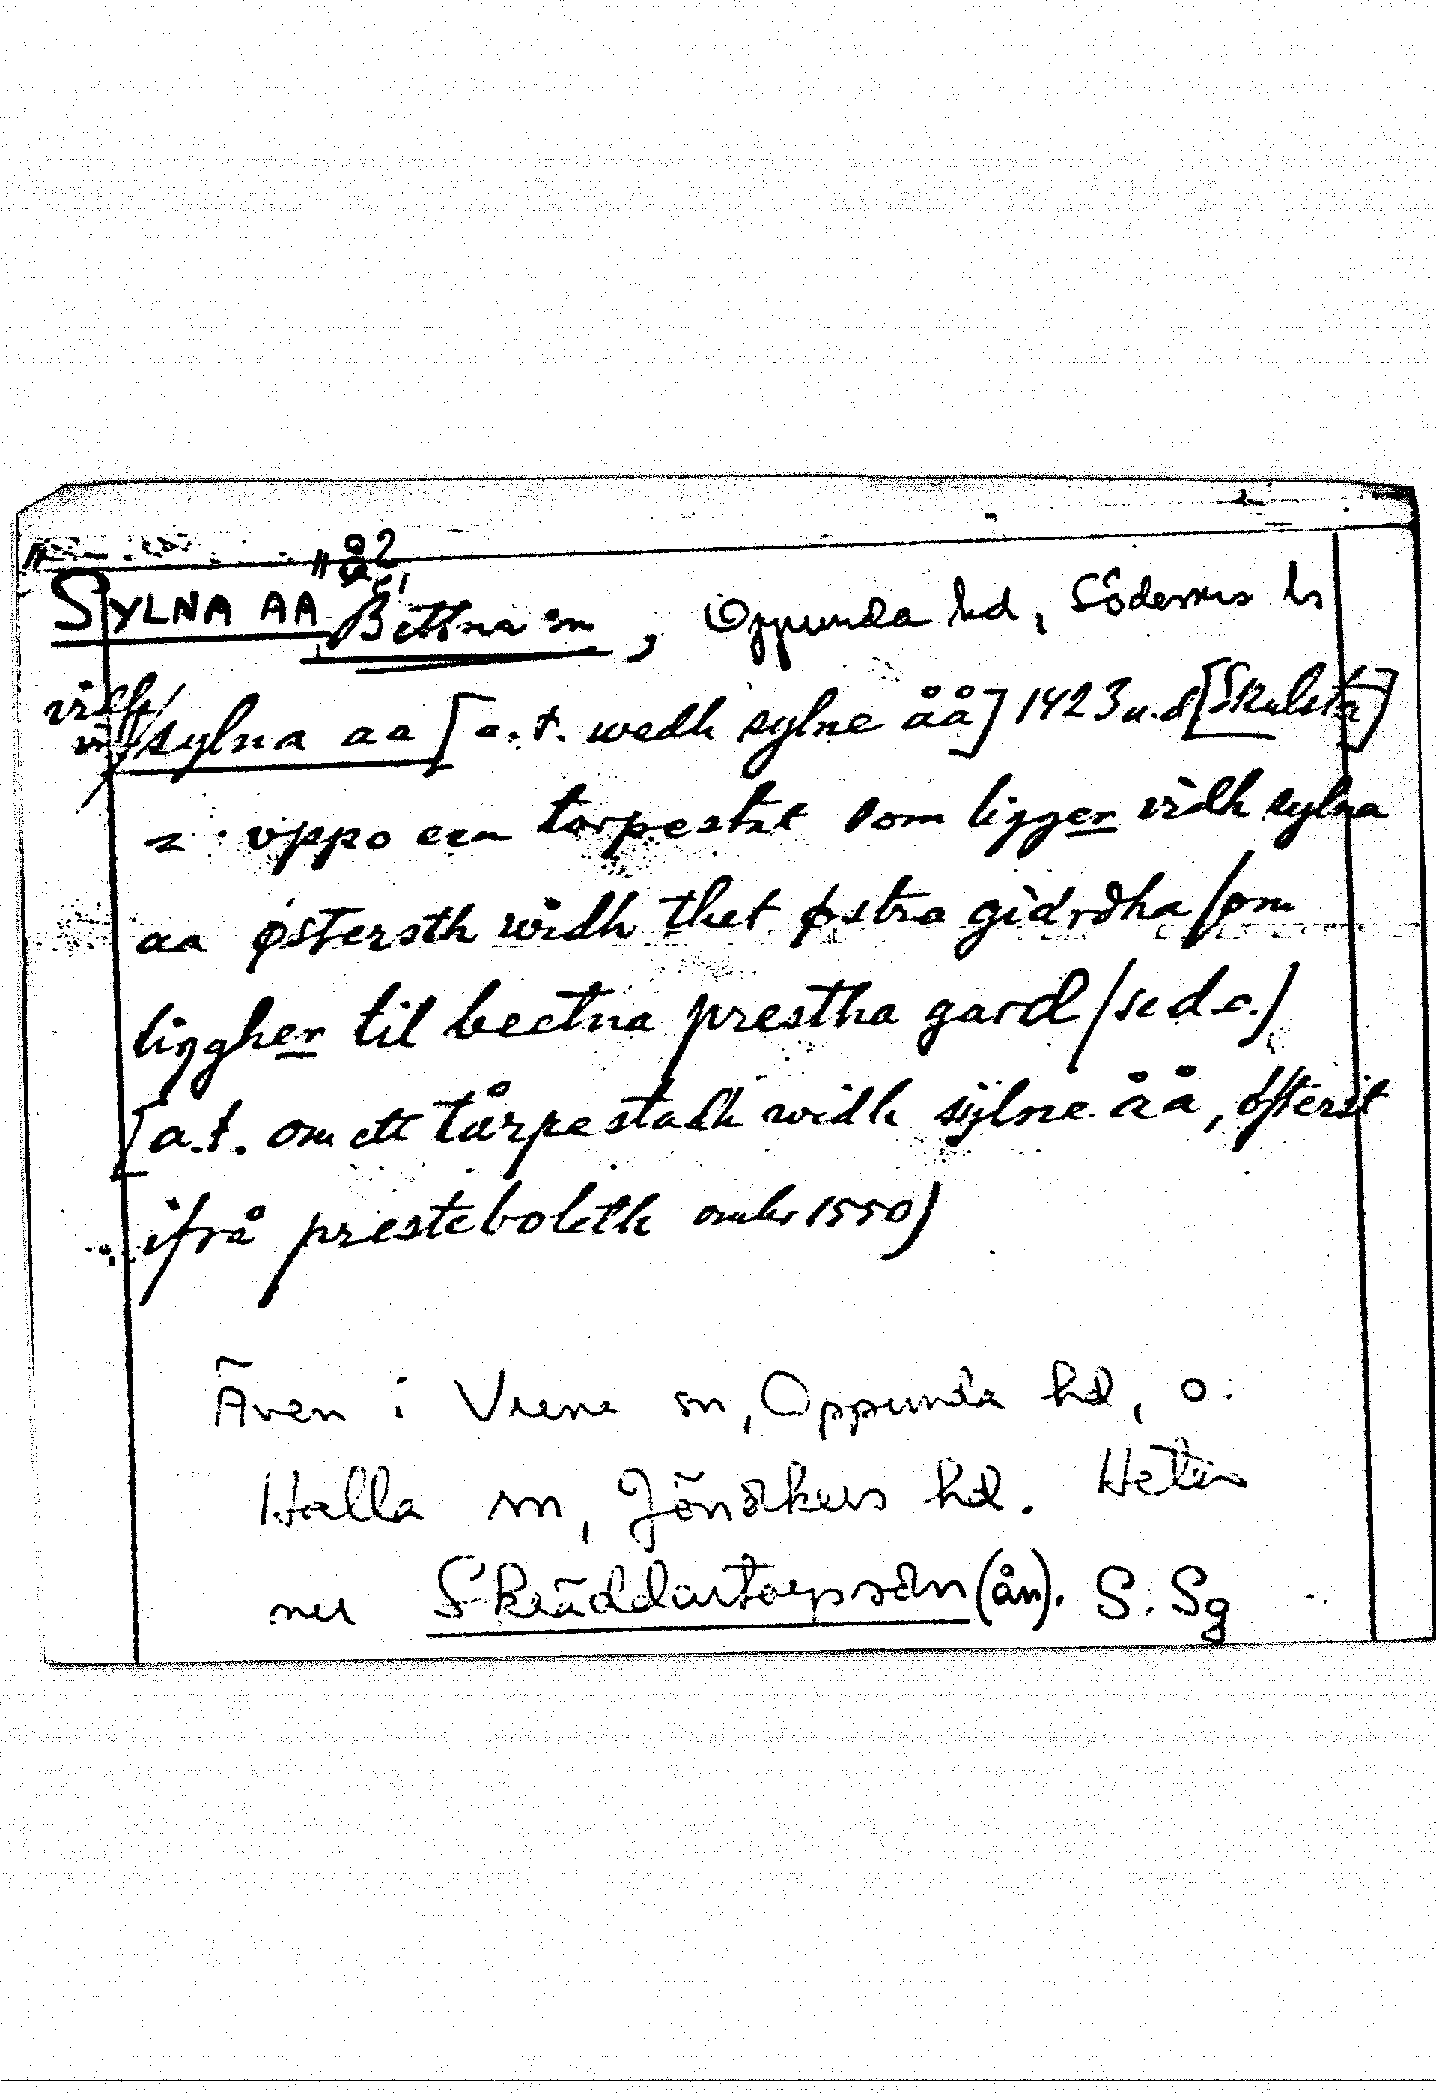 "å2
SYLNA AA Bettna sn, Oppunda hd, Södermns ln
vidh sylna aa [a.t. wedh sylne åå] 1423 u.d [Skulsta]
= vppo een torpestat som ligger vidh sylna
aa østersth widh thet østra giærdha som
liggher til beetna prestha gard (sedc.)
[a.t. om ett tårpestadh widh sÿlne åå, östersst
ifrå presteboleth omkr 1550)
Även i Vrena sn, Oppunda hd, o.
Halla sn, Jönåkers hd. Heter
nu Skräddartorpsån (ån). S. Sg